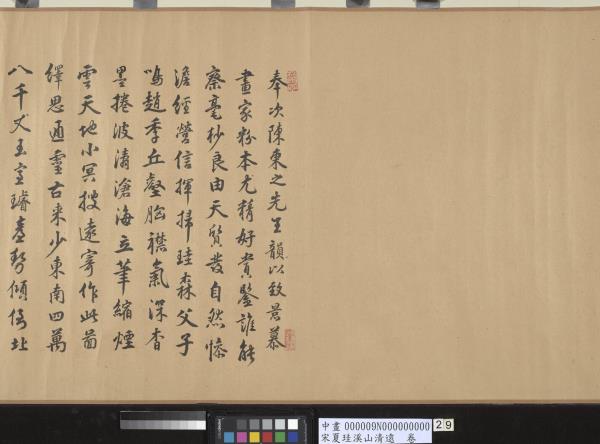 奉次陳東之先生韻以致景慕
畫家粉本尤精好賞鑒誰能
察毫杪良由天質發自然慘
澹經營信揮掃珪森父子
鳴趙季丘壑胸襟氣深杳
墨捲波濤滄海立筆縮煙
雲天地小冥搜遠寄作此圖
繹思通靈古来少東南四萬
八千丈玉室璿臺勢傾倒北
中畫 000009N000000000 29
宋夏珪溪山清遠 卷